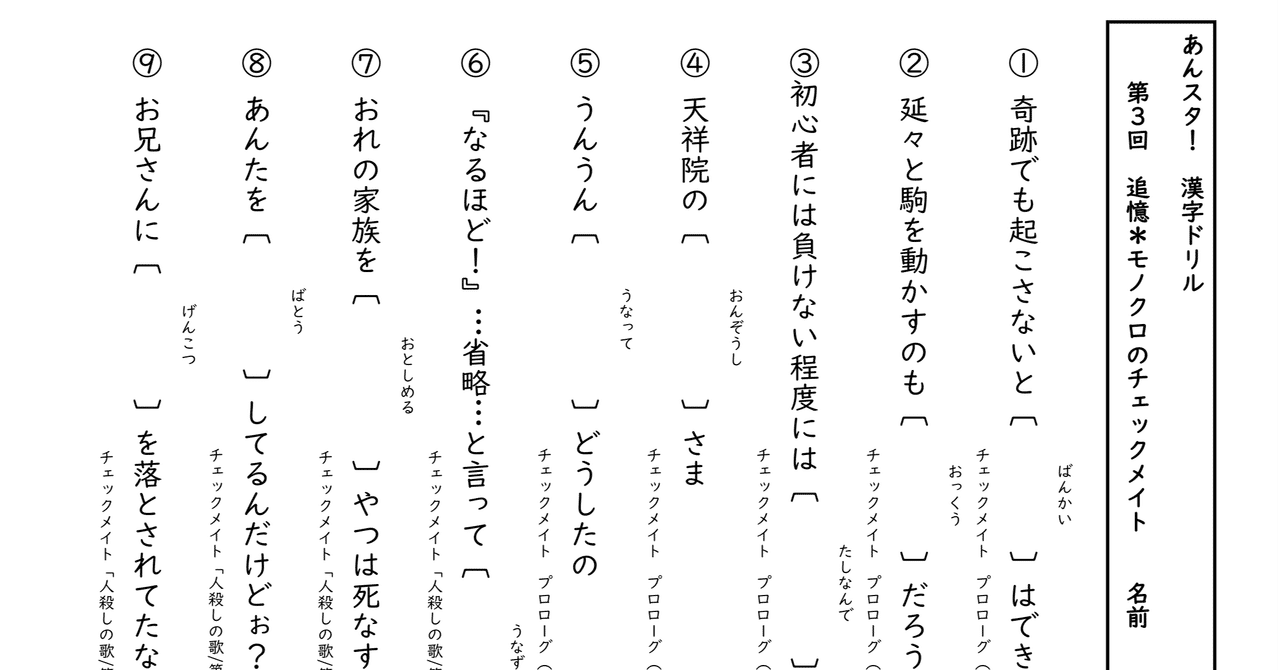 あんスタ！　漢字ドリル
第３回　追憶＊モノクロのチェックメイト　名前
ばんかい
①奇跡でも起こさないと〔　　　〕はでき
チェックメイト　プロローグ（
おっくう
②延々と駒を動かすのも〔　　　〕だろう
チェックメイト　プロローグ（
たしなんで
③初心者には負けない程度には〔　　　〕
チェックメイト　プロローグ（
おんぞうし
④天祥院の〔　　　〕さま
チェックメイト　プロローグ（
うなって
⑤うんうん〔　　　〕どうしたの
チェックメイト　プロローグ（
うなず
⑥『なるほど！』…省略…と言って〔
チェックメイト「人殺しの歌/
おとしめる
⑦おれの家族を〔　　　〕やつは死なす
チェックメイト「人殺しの歌/
ばとう
⑧あんたを〔　　　〕してるんだけどぉ？
チェックメイト「人殺しの歌/第
げんこつ
⑨お兄さんに〔　　　〕を落とされてたな
チェックメイト「人殺しの歌/